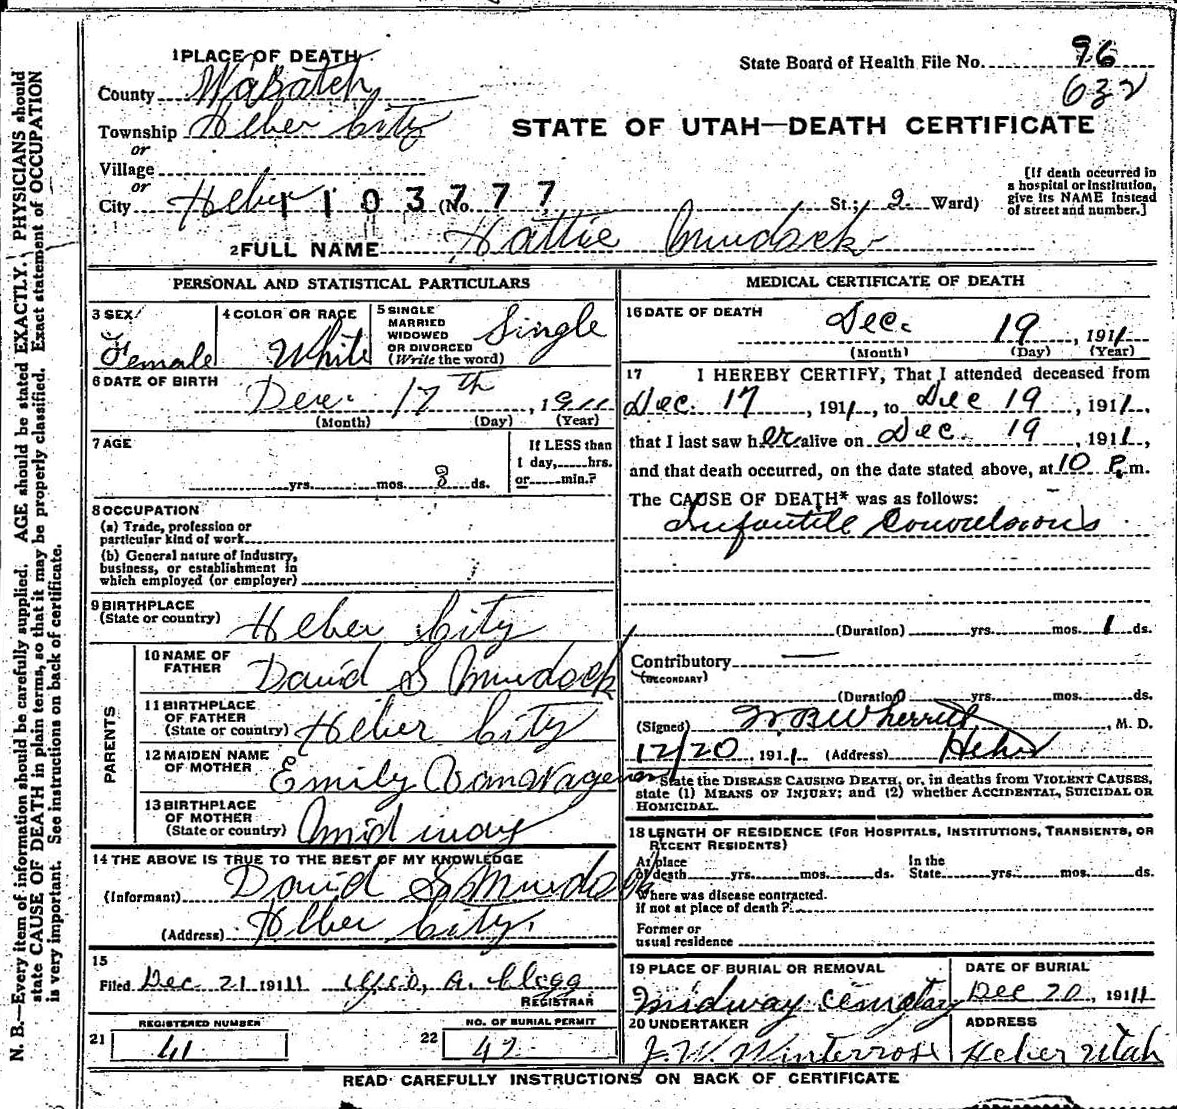 1 PLACE OF DEATH
State Board of Health File No. 96
632
County Wasatch
Township Heber City
or
Village
or
City Heber
1103777
(No. St.; 2 Ward)
STATE OF UTAH—DEATH CERTIFICATE
[If death occurred in
a hospital or institution,
give its NAME instead
of street and number.]
2 FULL NAME Hattie Murdock
PERSONAL AND STATISTICAL PARTICULARS
3 SEX Female
4 COLOR OR RACE White
5 SINGLE
MARRIED
WIDOWED
OR DIVORCED
(Write the word) Single
6 DATE OF BIRTH
Dec. 17th, 1911
(Month) (Day) (Year)
7 AGE
yrs. mos. 3 ds.
If LESS than
1 day, hrs.
or min.?
8 OCCUPATION
(a) Trade, profession or
particular kind of work
(b) General nature of industry,
business, or establishment in
which employed (or employer)
9 BIRTHPLACE
(State or country) Heber City
PARENTS
10 NAME OF
FATHER David S Murdock
11 BIRTHPLACE
OF FATHER
(State or country) Heber City
12 MAIDEN NAME
OF MOTHER Emily VanWagenen
13 BIRTHPLACE
OF MOTHER
(State or country) Midway
14 THE ABOVE IS TRUE TO THE BEST OF MY KNOWLEDGE
(Informant) David S Murdock
(Address) Heber City.
15
Filed Dec 21 1911 Geo. A. Clegg
REGISTRAR
21 REGISTERED NUMBER
41
22 NO. OF BURIAL PERMIT
47
MEDICAL CERTIFICATE OF DEATH
16 DATE OF DEATH
Dec. 19, 1911
(Month) (Day) (Year)
17 I HEREBY CERTIFY, That I attended deceased from
Dec. 17, 1911, to Dec 19, 1911,
that I last saw her alive on Dec. 19, 1911,
and that death occurred, on the date stated above, at 10 P.m.
The CAUSE OF DEATH* was as follows:
Infantile Convulsions
(Duration) yrs. mos. 1 ds.
Contributory
(SECONDARY)
(Duration) yrs. mos. ds.
(Signed) W R Wherritt, M. D.
12/20, 1911 (Address) Heber
*State the DISEASE CAUSING DEATH, or, in deaths from VIOLENT CAUSES,
state (1) MEANS OF INJURY; and (2) whether ACCIDENTAL, SUICIDAL OR
HOMICIDAL.
18 LENGTH OF RESIDENCE (FOR HOSPITALS, INSTITUTIONS, TRANSIENTS, OR
RECENT RESIDENTS)
At place
of death yrs. mos. ds.
In the
State yrs. mos. ds.
Where was disease contracted.
if not at place of death?
Former or
usual residence
19 PLACE OF BURIAL OR REMOVAL
Midway cemetary
DATE OF BURIAL
Dec 20, 1911
20 UNDERTAKER
J. W. Winterrose
ADDRESS
Heber Utah
READ CAREFULLY INSTRUCTIONS ON BACK OF CERTIFICATE
N. B.—Every item of information should be carefully supplied. AGE should be stated EXACTLY. PHYSICIANS should
state CAUSE OF DEATH in plain terms, so that it may be properly classified. Exact statement of OCCUPATION
is very important. See instructions on back of certificate.